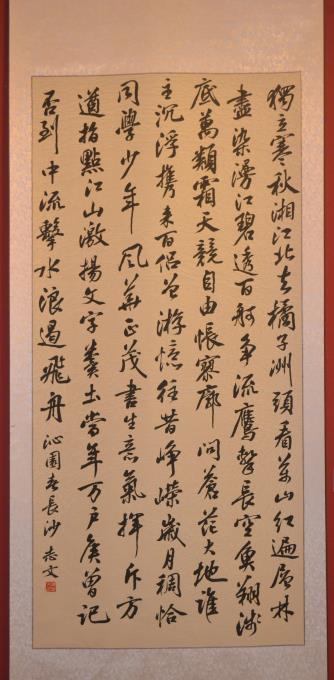 獨立寒秋湘江北去橘子洲頭看万山红遍層林
盡染漫江碧透百舸争流鷹擊長空魚翔淺
底萬類霜天競自由悵寥廓問蒼茫大地誰
主沉浮携来百侣曾游憶往昔崢嶸歲月稠恰
同學少年風華正茂書生意氣揮斥方
遒指點江山激揚文字糞土當年万户侯曾記
否到中流擊水浪遏飛舟 沁園春長沙 志文